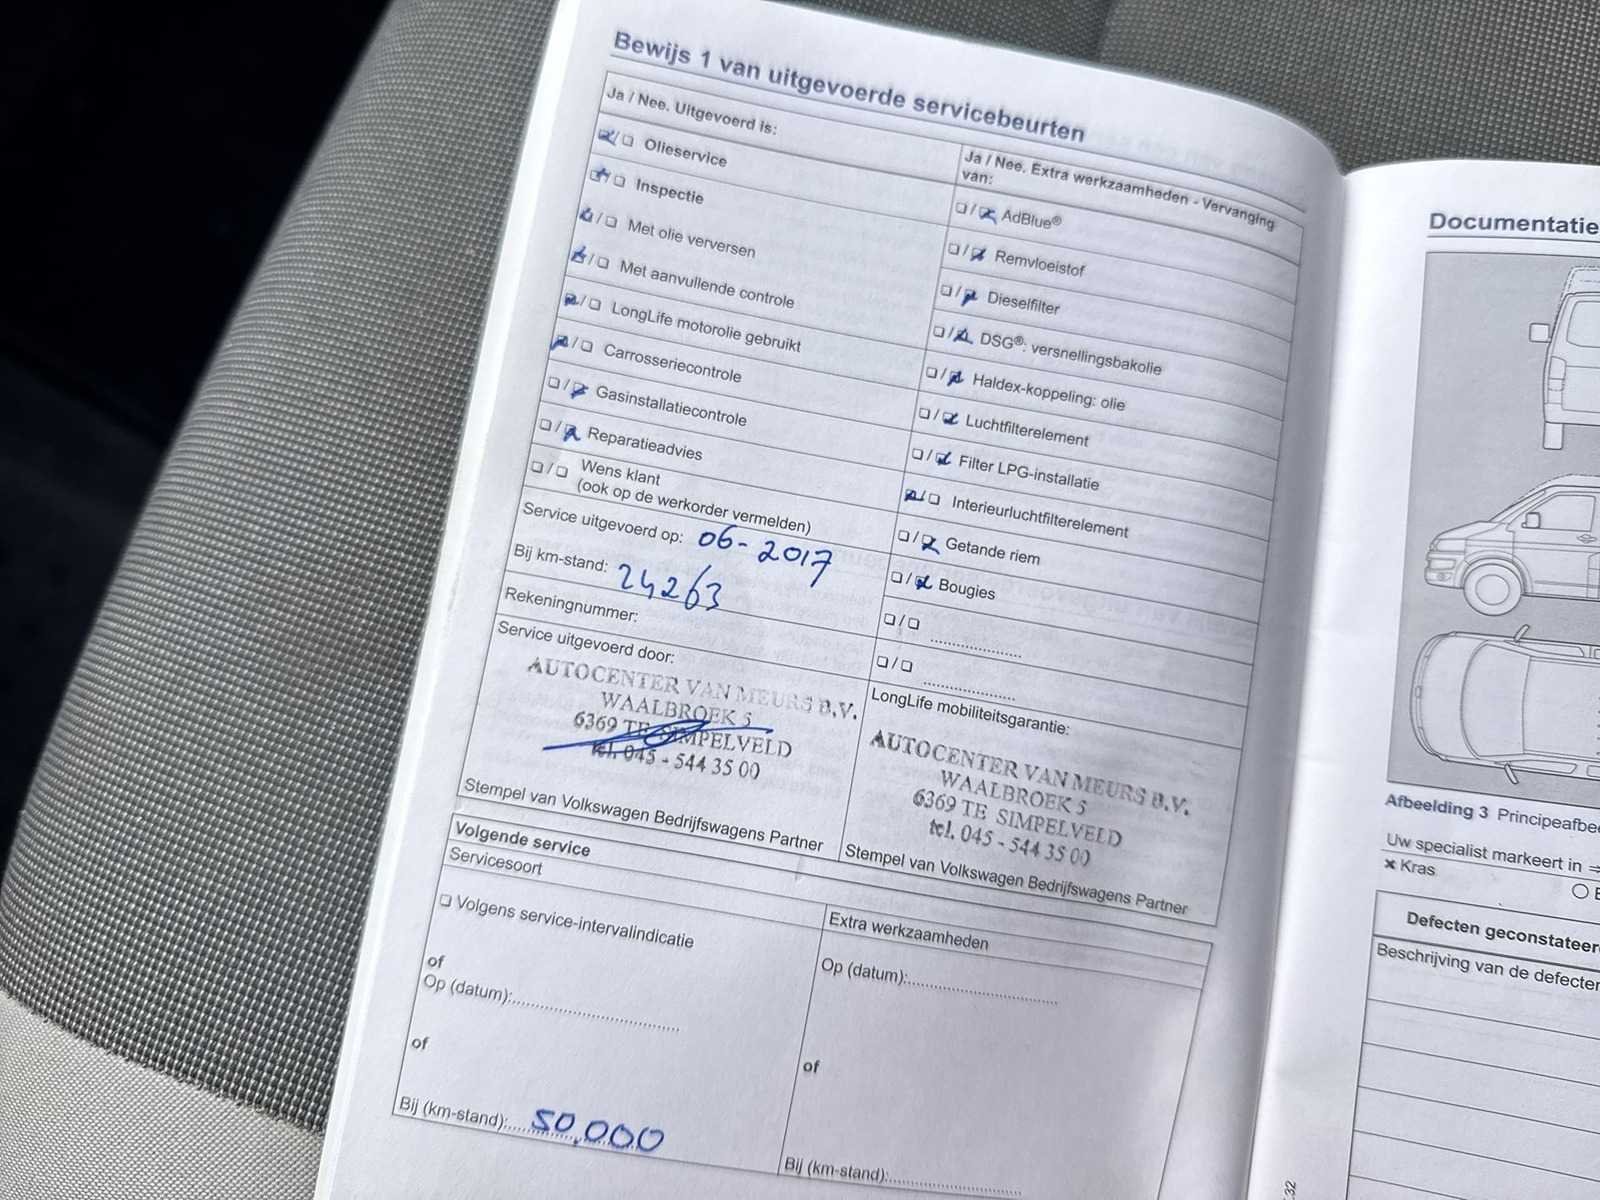 Bewijs 1 van uitgevoerde servicebeurten
Ja / Nee. Uitgevoerd is:
Olieservice
Inspectie
Met olie verversen
Met aanvullende controle
LongLife motorolie gebruikt
Carrosseriecontrole
Gasinstallatiecontrole
Reparatieadvies
Wens klant
(ook op de werkorder vermelden)
Service uitgevoerd op: 06-2017
Bij km-stand: 24263
Rekeningnummer:
Service uitgevoerd door:
AUTOCENTER VAN MEURS B.V.
WAALBROEK 5
6369 TE SIMPELVELD
tel. 045 - 544 35 00
Stempel van Volkswagen Bedrijfswagens Partner
Ja / Nee. Extra werkzaamheden - Vervanging
van:
AdBlue®
Remvloeistof
Dieselfilter
DSG®: versnellingsbakolie
Haldex-koppeling: olie
Luchtfilterelement
Filter LPG-installatie
Interieurluchtfilterelement
Getande riem
Bougies
LongLife mobiliteitsgarantie:
AUTOCENTER VAN MEURS B.V.
WAALBROEK 5
6369 TE SIMPELVELD
tel. 045 - 544 35 00
Stempel van Volkswagen Bedrijfswagens Partner
Volgende service
Servicesoort
Volgens service-intervalindicatie
of
Op (datum):
of
Bij (km-stand): 50,000
Extra werkzaamheden
Op (datum):
of
Bij (km-stand):
Documentatie
Afbeelding 3 Principeafbee
Uw specialist markeert in
Kras
Defecten geconstateer
Beschrijving van de defecten
.32